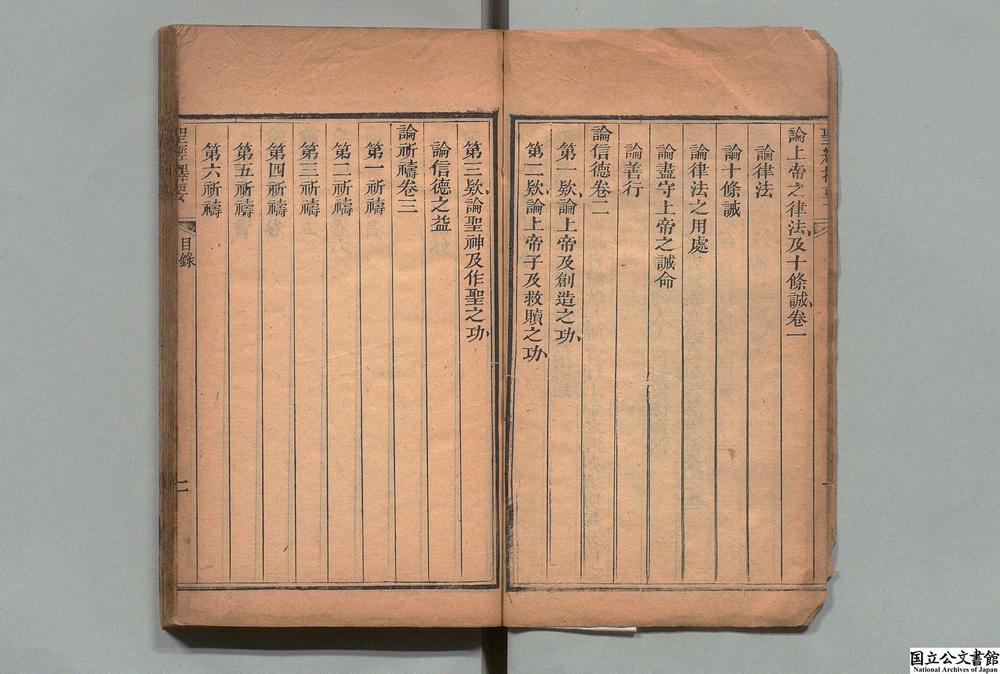 論上帝之律法及十條誡卷一
論律法
論十條誡
論律法之用處
論盡守上帝之誡命
論善行
論信德卷二
第一欵論上帝及創造之功
第二欵論上帝子及救贖之功
第三欵論聖神及作聖之功
論信德之益
論祈禱卷三
第一祈禱
第二祈禱
第三祈禱
第四祈禱
第五祈禱
第六祈禱
目錄
二
国立公文書館
National Archives of Japan